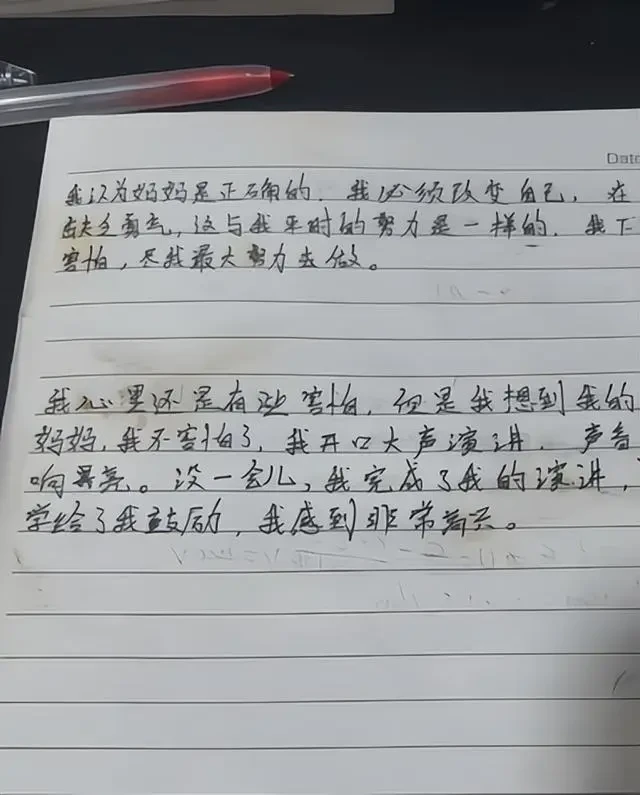 Date
我认为妈妈是正确的. 我必须改变自己, 在
缺乏勇气, 这与我平时的努力是一样的. 我下
害怕, 尽我最大努力去做。
我心里还是有些害怕, 但是我想到我的
妈妈, 我不害怕了, 我开口大声演讲. 声音
响亮。没一会儿, 我完成了我的演讲,
学给了我鼓励, 我感到非常